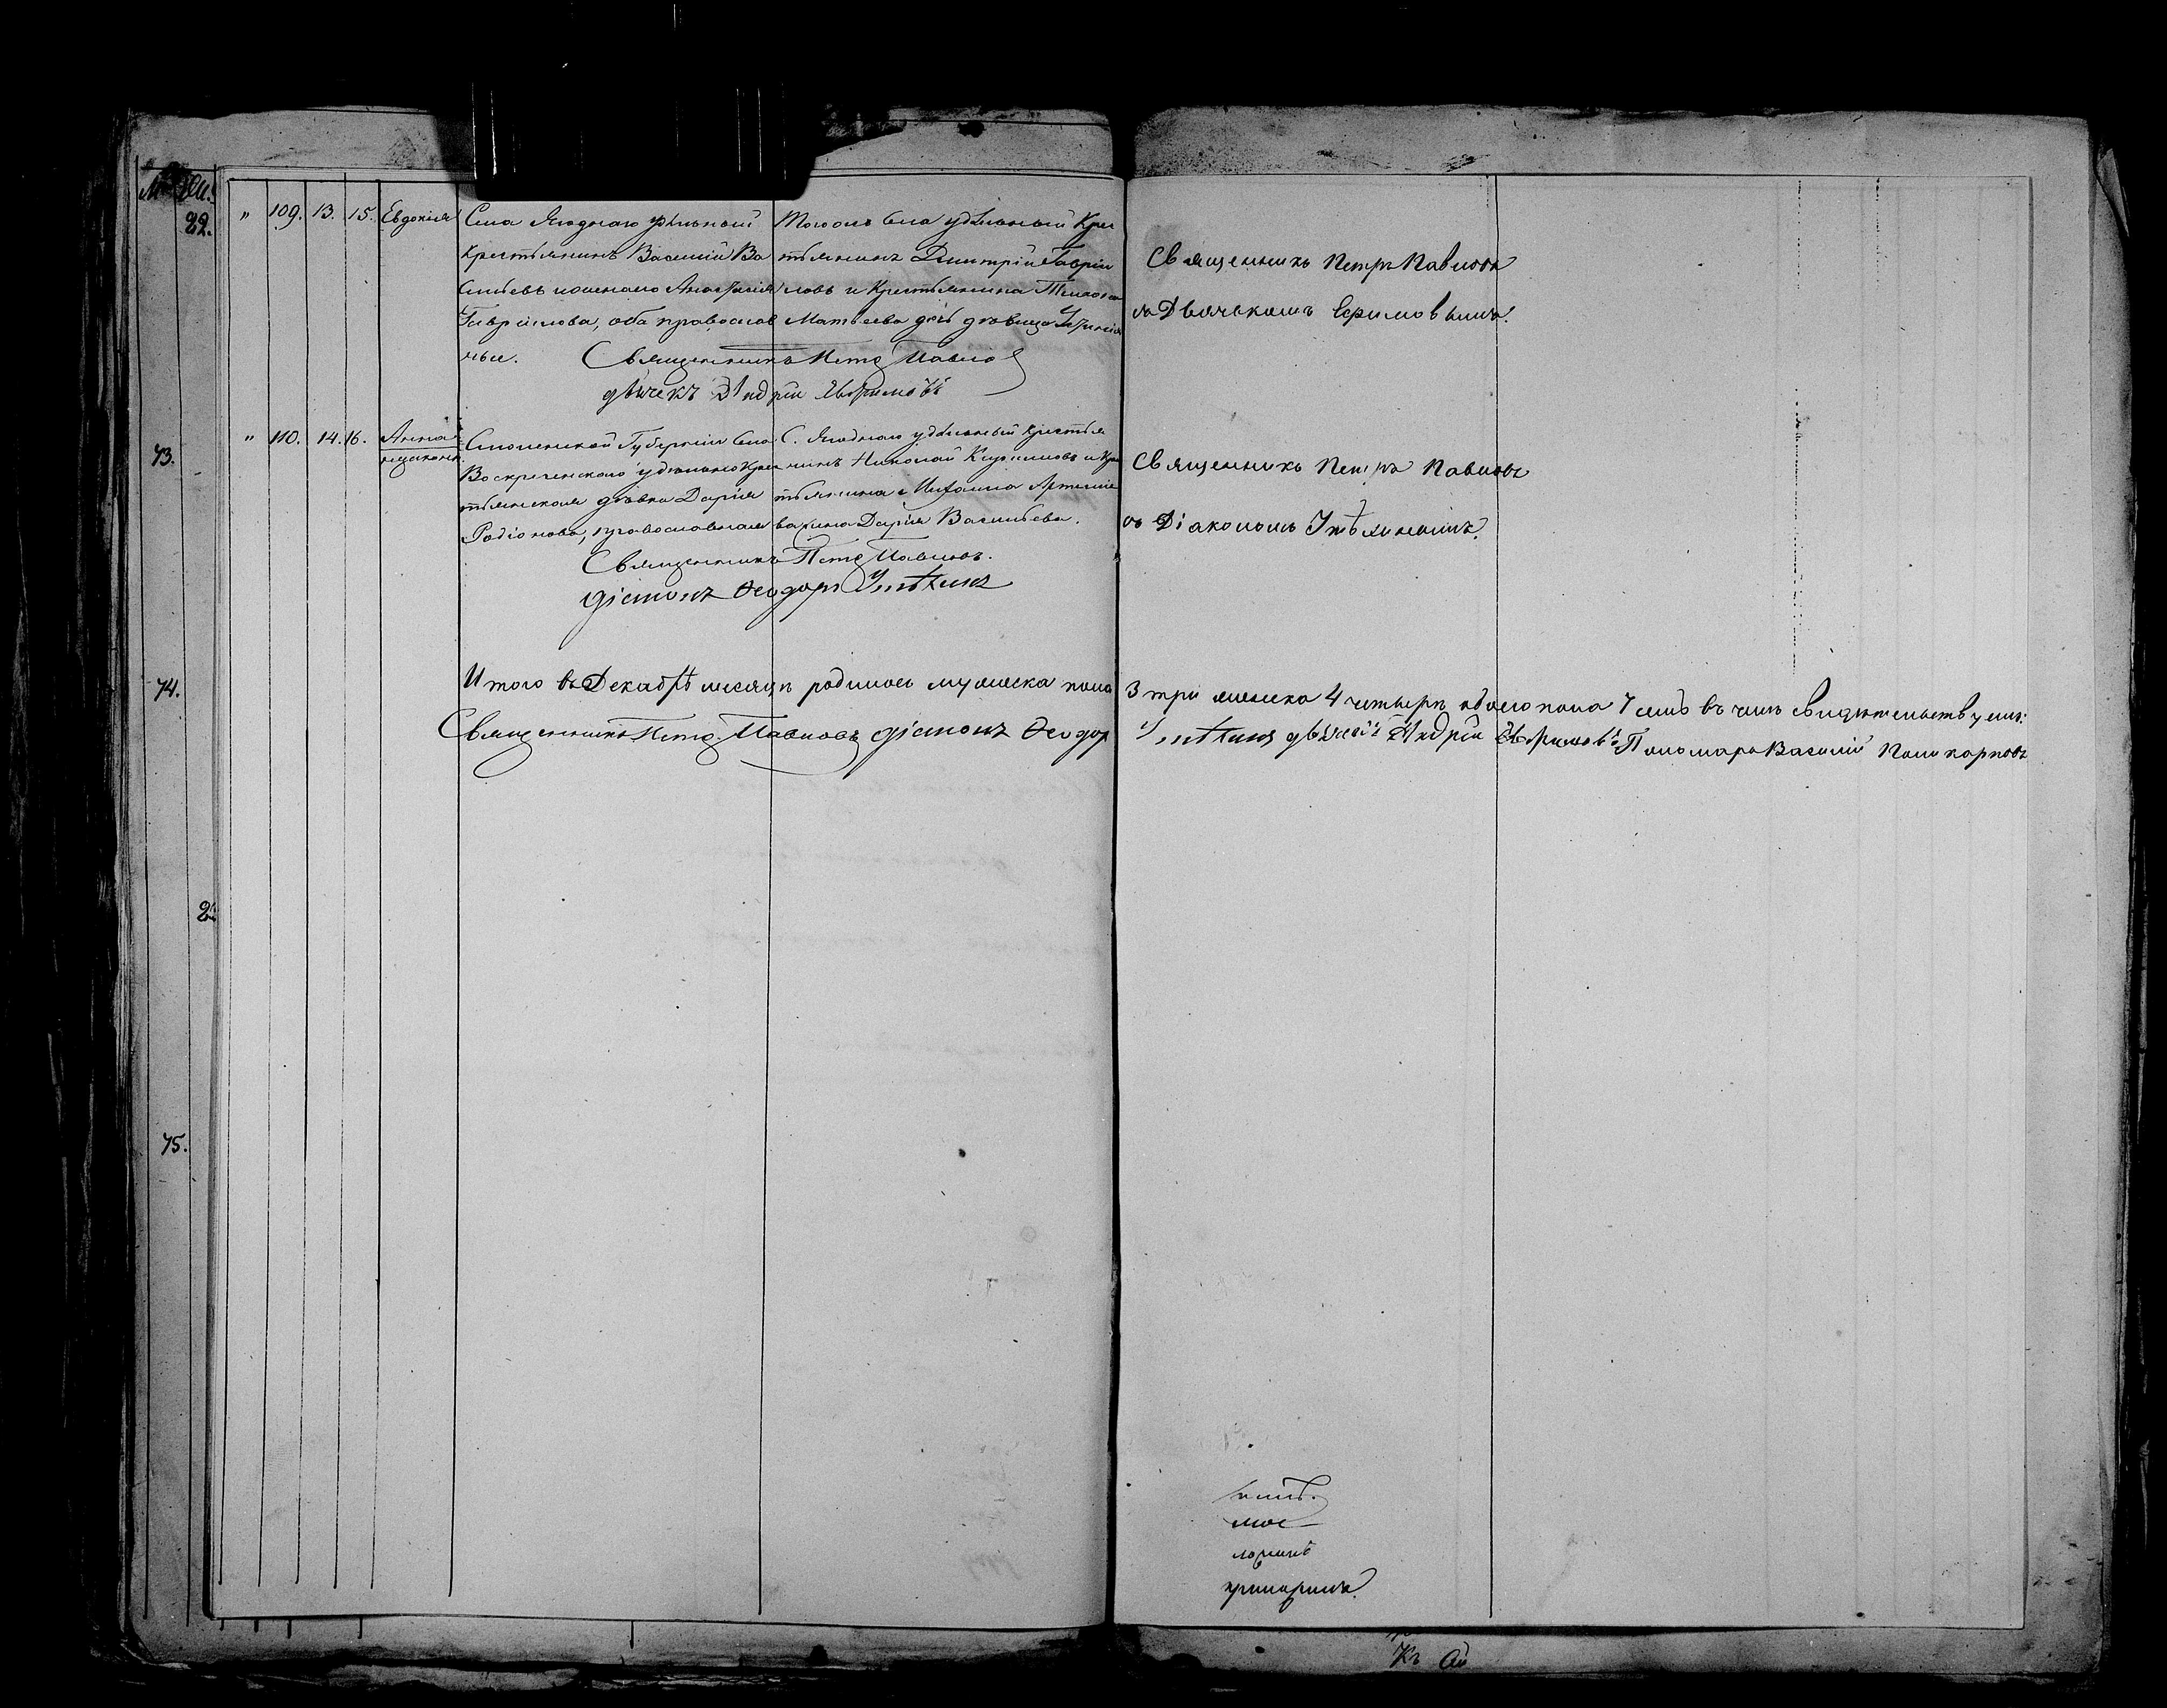 22.
" 109. 13. 15. Евдокія
Села Ягоднаго удѣльный
Крестьянинъ Василій Ва
сильевъ и жена его Анастасія
Гаврилова, оба православ
ные.
Тогожъ села удѣльный Крес
тьянинъ Димитрій Гаври
ловъ и Крестьянина
Матвѣева дочь дѣвица
Священникъ Петръ Павловъ
дьячекъ Андрей Ефимовъ
Священникъ Петръ Павловъ
съ Дьячькомъ Ефимовымъ.
73.
" 110. 14. 16. Анна
незаконн.
Смоленской Губерніи села
Воскресенскаго удѣльнаго Крес
тьянская дѣвка Дарія
Родіонова, православная
С. Ягоднаго удѣльный Крестья
нинъ Николай Кириловъ и Кре
стьянина Михаила Артемье
ва жена Дарія Васильева.
Священникъ Петръ Павловъ.
діаконъ Ѳеодоръ
Священникъ Петръ Павловъ
съ Діакономъ
74.
Итого въ Декабрѣ месяцѣ родилось мужеска пола 3 три женска 4 четыре обоего пола 7 семь въ чемъ свидѣтельствуемъ:
Священникъ Петръ Павловъ діаконъ Ѳеодоръ дьячекъ Андрей Ефимовъ Пономарь Василій Поликарповъ
2
75.
мое
Къ